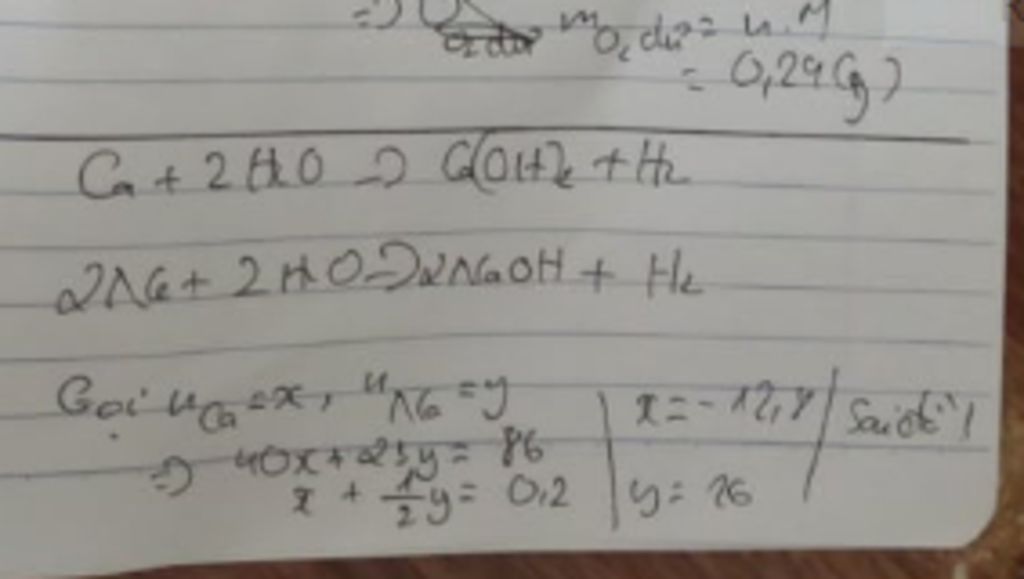 => m O₂ dư = n.M
= 0,24(g)
Ca + 2H₂O => Ca(OH)₂ + H₂
2Na + 2H₂O => 2NaOH + H₂
Gọi nCa = x, nNa = y
=> 40x + 23y = 86
x + 1/2 y = 0,2
x = -12,
y = 26
Sai đề!